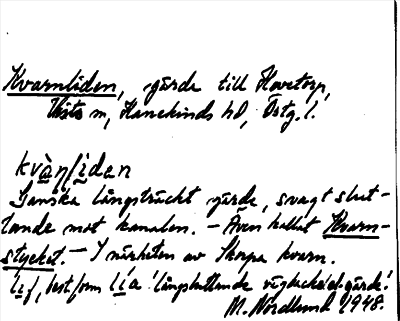 Kvarnliden, gärde till Hovetorp,
m, Hanekinds hd, Östg. l.
kvànlidan
Ganska långsträckt gärde, svagt slut-
tande mot kanalen. – Även kallat Kvarn-
stycket. – I närheten av Skepa kvarn.
best. form lía 'långsluttande
M. Nordlund 1948.